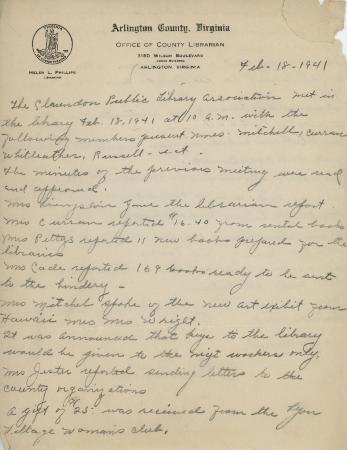 Arlington County, Virginia
OFFICE OF COUNTY LIBRARIAN
3150 WILSON BOULEVARD
ARLINGTON, VIRGINIA
HELEN L. PHILLIPS
LIBRARIAN
Feb. 18-1941
The Clarendon Public Library Association met in
the library Feb. 18.1941 at 10 A.M. with the
following members present Mmes. Mitchell, Curran
Whitleather, Russell - ect -
the minutes of the previous meeting were read
and approved.
Mrs gave the librarian report
Mrs Curran reported $16.40 from rental books
Mrs Pettys reported 11 new books prepared for the
libraries
Mrs Cade reported 169 books ready to be sent
to the bindery -
Mrs Mitchel spoke of the new art exibit from
Hawaii Mrs Wright.
It was announced that keys to the library
would be given to the workers only.
Mrs Juster reported sending letters to the
county organizations
A gift of $25. was received from the Lyon
Village Woman's Club.